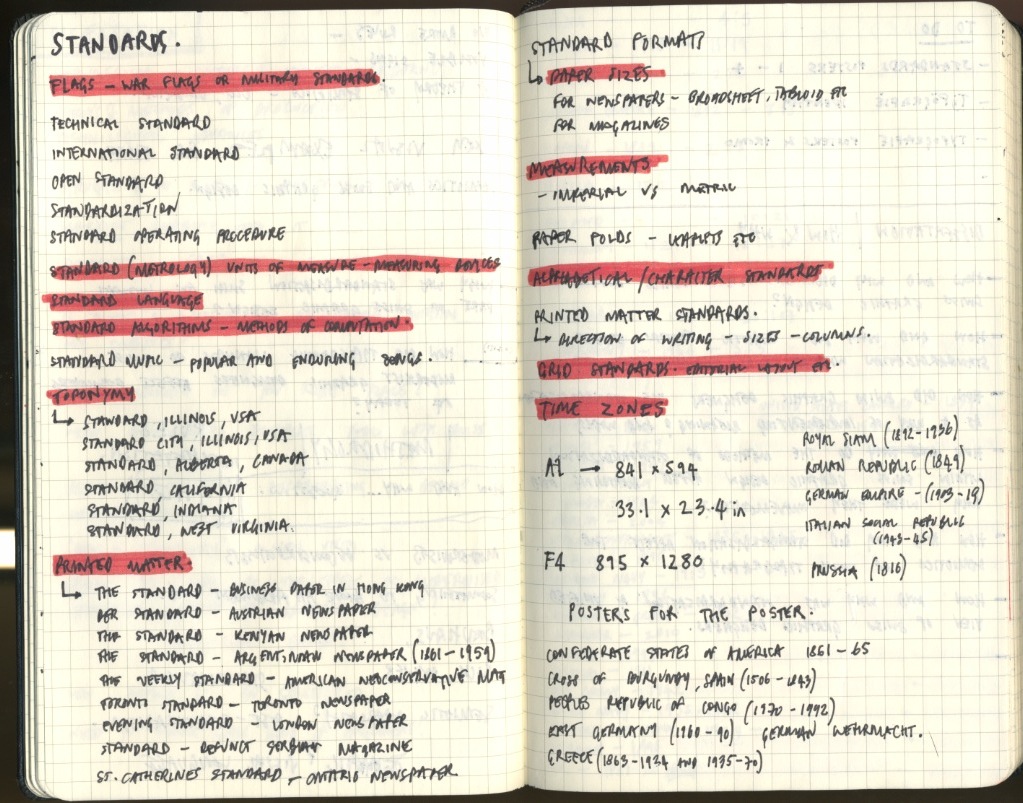 STANDARDS.
FLAGS - WAR FLAGS OR MILITARY STANDARDS.
TECHNICAL STANDARD
INTERNATIONAL STANDARD
OPEN STANDARD
STANDARDIZATION
STANDARD OPERATING PROCEDURE
STANDARD (METROLOGY) UNITS OF MEASURE - MEASURING DEVICES
STANDARD LANGUAGE
STANDARD ALGORITHMS - METHODS OF COMPUTATION.
STANDARD MUSIC - POPULAR AND ENDURING SONGS.
TOPONYMY
↳ STANDARD, ILLINOIS, USA
STANDARD CITY, ILLINOIS, USA
STANDARD, ALBERTA, CANADA
STANDARD CALIFORNIA
STANDARD, INDIANA
STANDARD, WEST VIRGINIA.
PRINTED MATTER.
↳ THE STANDARD - BUSINESS PAPER IN HONG KONG
DER STANDARD - AUSTRIAN NEWSPAPER
THE STANDARD - KENYAN NEWSPAPER
THE STANDARD - ARGENTINIAN NEWSPAPER (1861 - 1959)
THE WEEKLY STANDARD - AMERICAN NEOCONSERVATIVE MAG
TORONTO STANDARD - TORONTO NEWSPAPER
EVENING STANDARD - LONDON NEWSPAPER
STANDARD - DEFUNCT SERBIAN MAGAZINE
ST. CATHERINES STANDARD - ONTARIO NEWSPAPER
STANDARD FORMATS
↳ PAPER SIZES
FOR NEWSPAPERS - BROADSHEET, TABLOID ETC
FOR MAGAZINES
MEASUREMENTS
- IMPERIAL VS METRIC
PAPER FOLDS - LEAFLETS ETC
ALPHABETICAL / CHARACTER STANDARDS
PRINTED MATTER STANDARDS.
↳ DIRECTION OF WRITING - SIZES - COLUMNS.
GRID STANDARDS - EDITORIAL LAYOUT ETC.
TIME ZONES
A1 → 841 x 594
33.1 x 23.4 in
F4 895 x 1280
ROYAL SIAM (1892 - 1936)
ROMAN REPUBLIC (1849)
GERMAN EMPIRE - (1903 - 19)
ITALIAN SOCIAL REPUBLIC
(1943 - 45)
PRUSSIA (1816)
POSTERS FOR THE POSTER.
CONFEDERATE STATES OF AMERICA 1861 - 65
CROSS OF BURGUNDY, SPAIN (1506 - 1843)
PEOPLES REPUBLIC OF CONGO (1970 - 1992)
EAST GERMANY (1960 - 90) GERMAN WEHRMACHT.
GREECE (1863 - 1924 AND 1935 - 70)